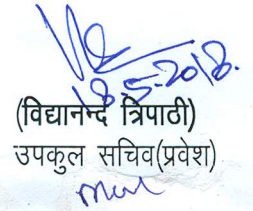 18.5.2018.
(विद्यानन्द त्रिपाठी)
उपकुल सचिव(प्रवेश)